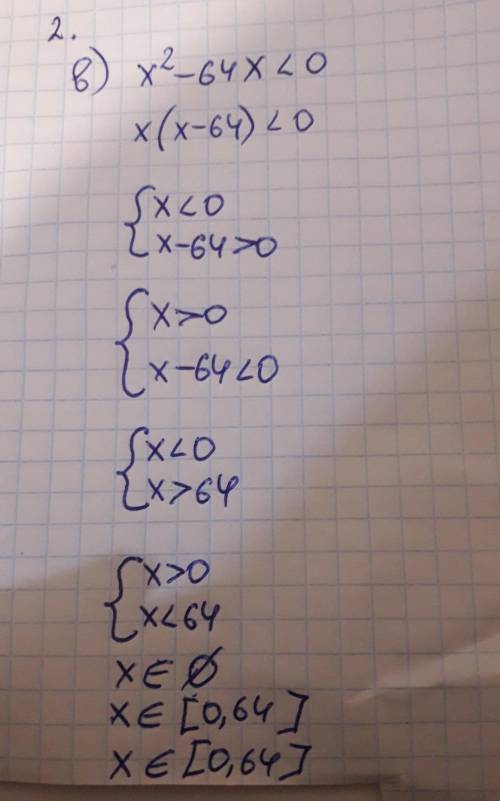 2.
в) x²-64x<0
x(x-64)<0
{x<0
x-64>0
{x>0
x-64<0
{x<0
x>64
{x>0
x<64
x∈∅
x∈[0,64]
x∈[0,64]